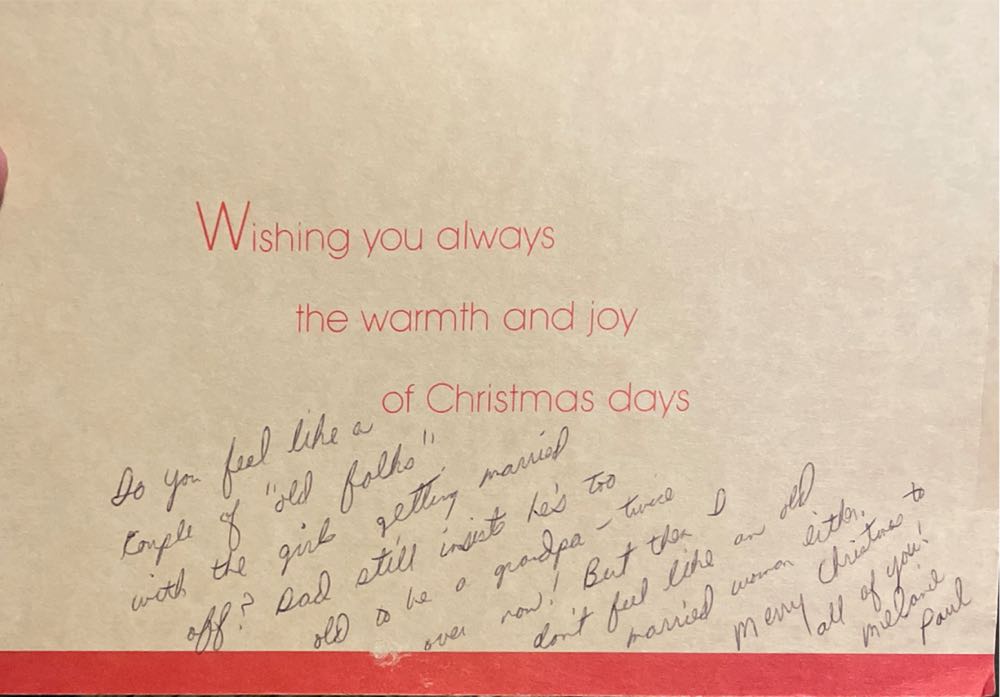 Wishing you always
the warmth and joy
of Christmas days
Do you feel like a
couple of "old folks"
with the girls getting married
off? Dad still insists he's too
old to be a grandpa - twice
over now! But then I
don't feel like an old
married woman either.
Merry Christmas to
all of you!
Melanie
Paul